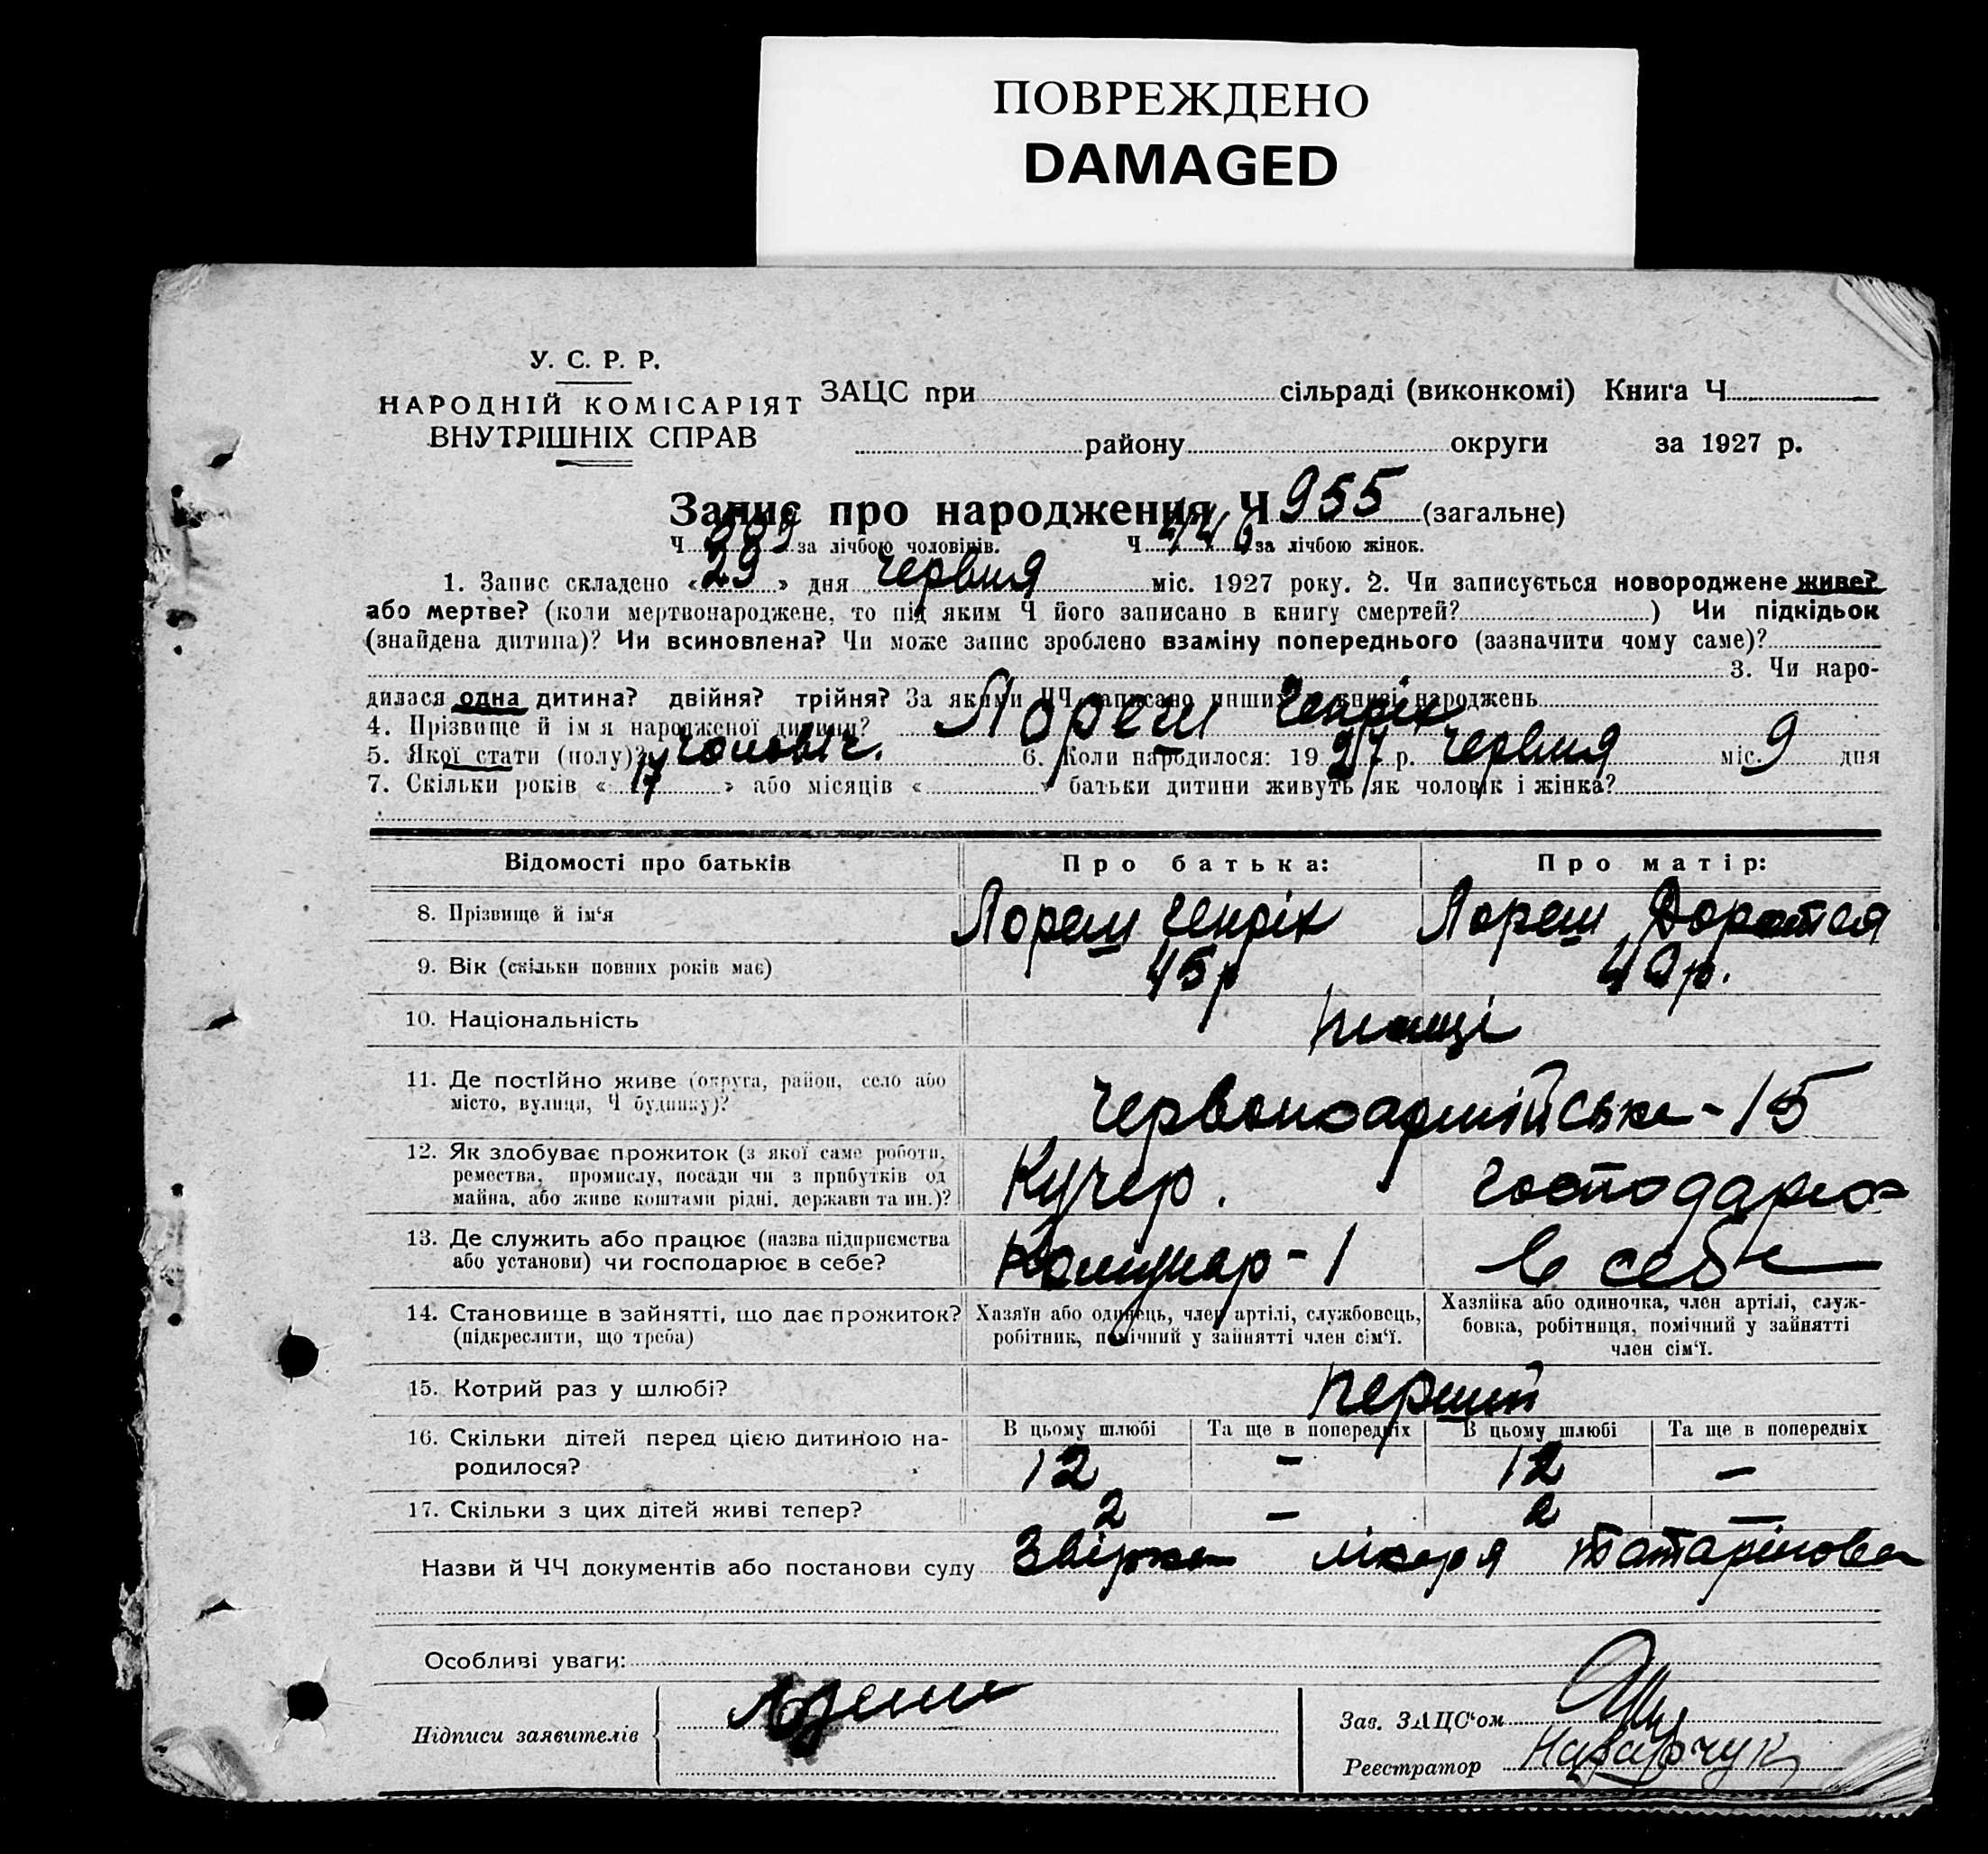 ПОВРЕЖДЕНО
DAMAGED
У. С. Р. Р.
НАРОДНІЙ КОМІСАРІЯТ
ВНУТРІШНІХ СПРАВ
ЗАЦС при сільраді (виконкомі) Книга Ч
району округи за 1927 р.
Запис про народження Ч 955 (загальне)
Ч за лічбою чоловіків. Ч 446 за лічбою жінок.
1. Запис складено « 29 » дня червня міс. 1927 року. 2. Чи записується новороджене живе?
або мертве? (коли мертвонароджене, то під яким Ч його записано в книгу смертей? ) Чи підкідьок
(знайдена дитина)? Чи всиновлена? Чи може запис зроблено взаміну попереднього (зазначити чому саме)?
3. Чи наро-
дилася одна дитина? двійня? трійня? За якими ЧЧ записано инших в книзі народжень
4. Прізвище й ім'я народженої дитини? Лореш Генріх
5. Якої стати (полу)? чоловіч. 6. Коли народилося: 1927 р. червня міс. 9 дня
7. Скільки років « 17 » або місяців « » батьки дитини живуть як чоловік і жінка?
Відомості про батьків Про батька: Про матір:
8. Прізвище й ім'я Лореш Генріх Лореш Доротея
9. Вік (скільки повних років має) 45 р 42 р.
10. Національність німці
11. Де постійно живе (округа, район, село або
місто, вулиця, Ч будинку)? Червоноармійська - 15
12. Як здобуває прожиток (з якої саме роботи,
ремества, промислу, посади чи з прибутків од
майна, або живе коштами рідні, держави та ин.)? Кучер. господарює
13. Де служить або працює (назва підприємства
або установи) чи господарює в себе? Комунар - 1 в себе
14. Становище в зайнятті, що дає прожиток?
(підкреслити, що треба)
Хазяїн або одинець, член артілі, службовець,
робітник, помічний у зайнятті член сім'ї.
Хазяйка або одиночка, член артілі, служ-
бовка, робітниця, помічний у зайнятті
член сім'ї.
15. Котрий раз у шлюбі? перший
16. Скільки дітей перед цією дитиною на-
родилося?
В цьому шлюбі Та ще в попередніх В цьому шлюбі Та ще в попередніх
12 - 12 -
17. Скільки з цих дітей живі тепер? 2 - 2 -
Назви й ЧЧ документів або постанови суду лікаря Татарінова
Особливі уваги:
Підписи заявителів
Зав. ЗАЦС'ом
Реєстратор